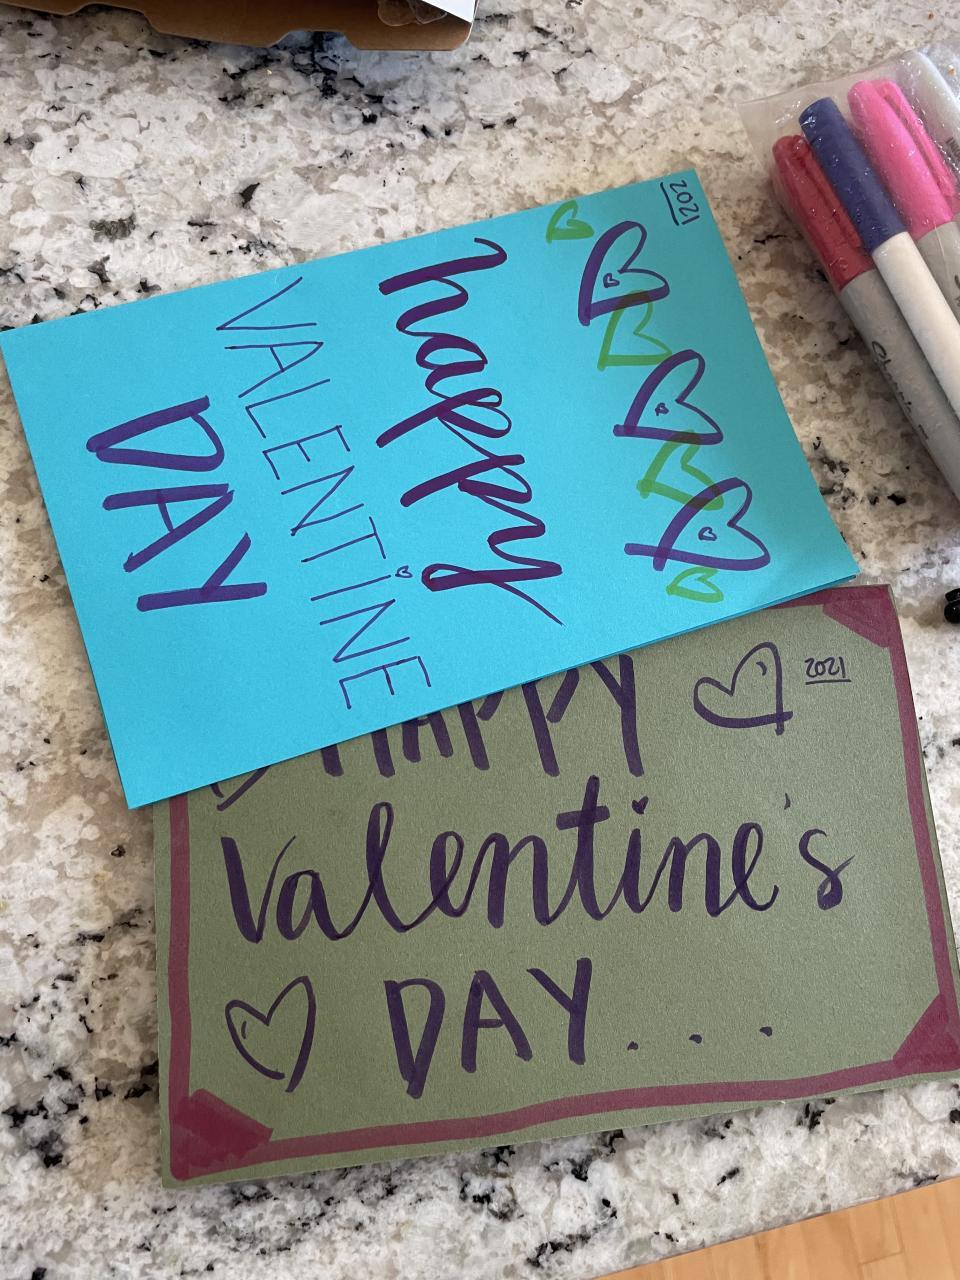 2021
happy
VALENTINE
DAY
HAPPY
2021
Valentine's
DAY...